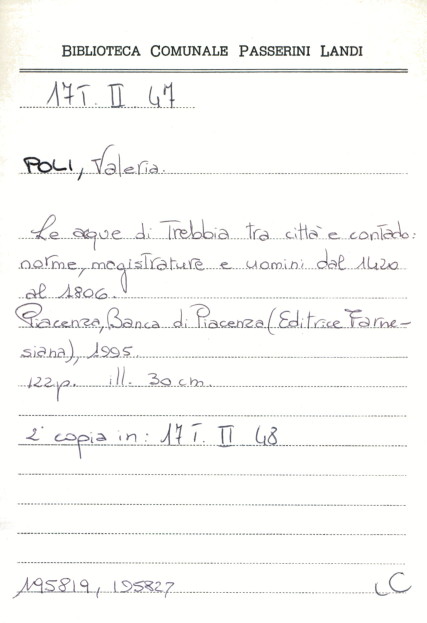 BIBLIOTECA COMUNALE PASSERINI LANDI
17 T. II 47
POLI, Valeria.
Le acque di Trebbia tra città e contado:
norme, magistrature e uomini dal 1420
al 1806.
Piacenza, Banca di Piacenza (Editrice Farne-
siana), 1995.
122 p. ill. 30 cm.
2ª copia in: 17 T. II 48
195819, 195827
LC